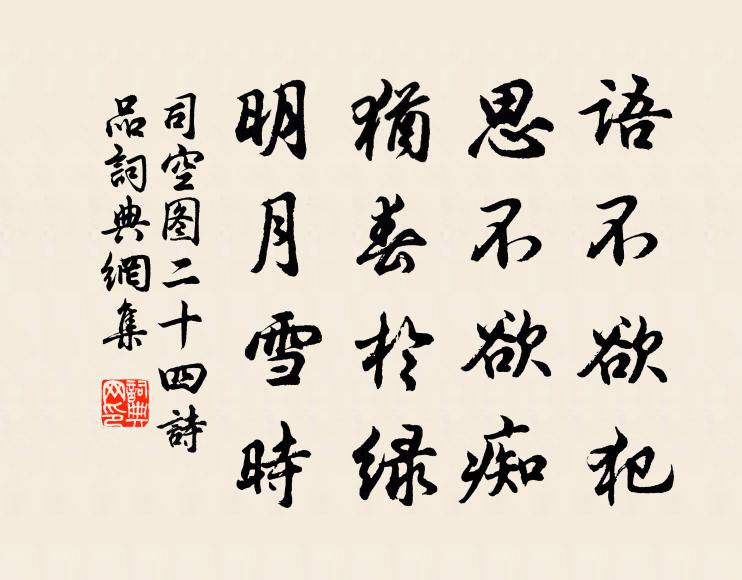 语不欲犯
思不欲痴
犹春於绿
明月雪時
司空图二十四詩
品詞典網集
詞典
网印